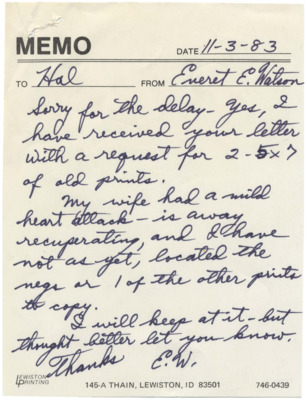 MEMO
DATE 11-3-83
TO Hal FROM Everet E. Watson
Sorry for the delay - Yes, I
have received your letter
with a request for 2 - 5x7
of old prints.
My wife had a mild
heart attack - is away
recuperating, and I have
not as yet, located the
negs or 1 of the other prints
to copy.
I will keep at it - but
thought better let you know.
Thanks E.W.
LEWISTON
PRINTING
145-A THAIN, LEWISTON, ID 83501 746-0439